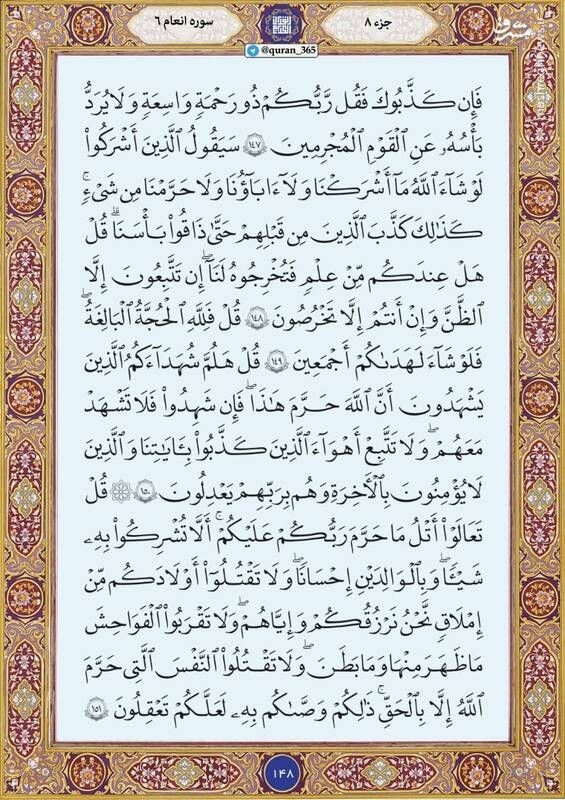 جزء ۸
سوره انعام ۶
@quran_365
فَإِن كَذَّبُوكَ فَقُل رَّبُّكُمْ ذُو رَحْمَةٍ وَاسِعَةٍ وَلَا يُرَدُّ
بَأْسُهُۥ عَنِ ٱلْقَوْمِ ٱلْمُجْرِمِينَ ۝١٤٧ سَيَقُولُ ٱلَّذِينَ أَشْرَكُوا۟
لَوْ شَآءَ ٱللَّهُ مَآ أَشْرَكْنَا وَلَآ ءَابَآؤُنَا وَلَا حَرَّمْنَا مِن شَىْءٍ ۚ
كَذَٰلِكَ كَذَّبَ ٱلَّذِينَ مِن قَبْلِهِمْ حَتَّىٰ ذَاقُوا۟ بَأْسَنَا ۗ قُلْ
هَلْ عِندَكُم مِّنْ عِلْمٍ فَتُخْرِجُوهُ لَنَآ ۖ إِن تَتَّبِعُونَ إِلَّا
ٱلظَّنَّ وَإِنْ أَنتُمْ إِلَّا تَخْرُصُونَ ۝١٤٨ قُلْ فَلِلَّهِ ٱلْحُجَّةُ ٱلْبَٰلِغَةُ ۖ
فَلَوْ شَآءَ لَهَدَىٰكُمْ أَجْمَعِينَ ۝١٤٩ قُلْ هَلُمَّ شُهَدَآءَكُمُ ٱلَّذِينَ
يَشْهَدُونَ أَنَّ ٱللَّهَ حَرَّمَ هَٰذَا ۖ فَإِن شَهِدُوا۟ فَلَا تَشْهَدْ
مَعَهُمْ ۚ وَلَا تَتَّبِعْ أَهْوَآءَ ٱلَّذِينَ كَذَّبُوا۟ بِـَٔايَٰتِنَا وَٱلَّذِينَ
لَا يُؤْمِنُونَ بِٱلْـَٔاخِرَةِ وَهُم بِرَبِّهِمْ يَعْدِلُونَ ۝١٥٠ ۞ قُلْ
تَعَالَوْا۟ أَتْلُ مَا حَرَّمَ رَبُّكُمْ عَلَيْكُمْ ۖ أَلَّا تُشْرِكُوا۟ بِهِۦ
شَيْـًٔا ۖ وَبِٱلْوَٰلِدَيْنِ إِحْسَٰنًا ۖ وَلَا تَقْتُلُوٓا۟ أَوْلَٰدَكُم مِّنْ
إِمْلَٰقٍ ۖ نَّحْنُ نَرْزُقُكُمْ وَإِيَّاهُمْ ۖ وَلَا تَقْرَبُوا۟ ٱلْفَوَٰحِشَ
مَا ظَهَرَ مِنْهَا وَمَا بَطَنَ ۖ وَلَا تَقْتُلُوا۟ ٱلنَّفْسَ ٱلَّتِى حَرَّمَ
ٱللَّهُ إِلَّا بِٱلْحَقِّ ۚ ذَٰلِكُمْ وَصَّىٰكُم بِهِۦ لَعَلَّكُمْ تَعْقِلُونَ ۝١٥١
۱۴۸